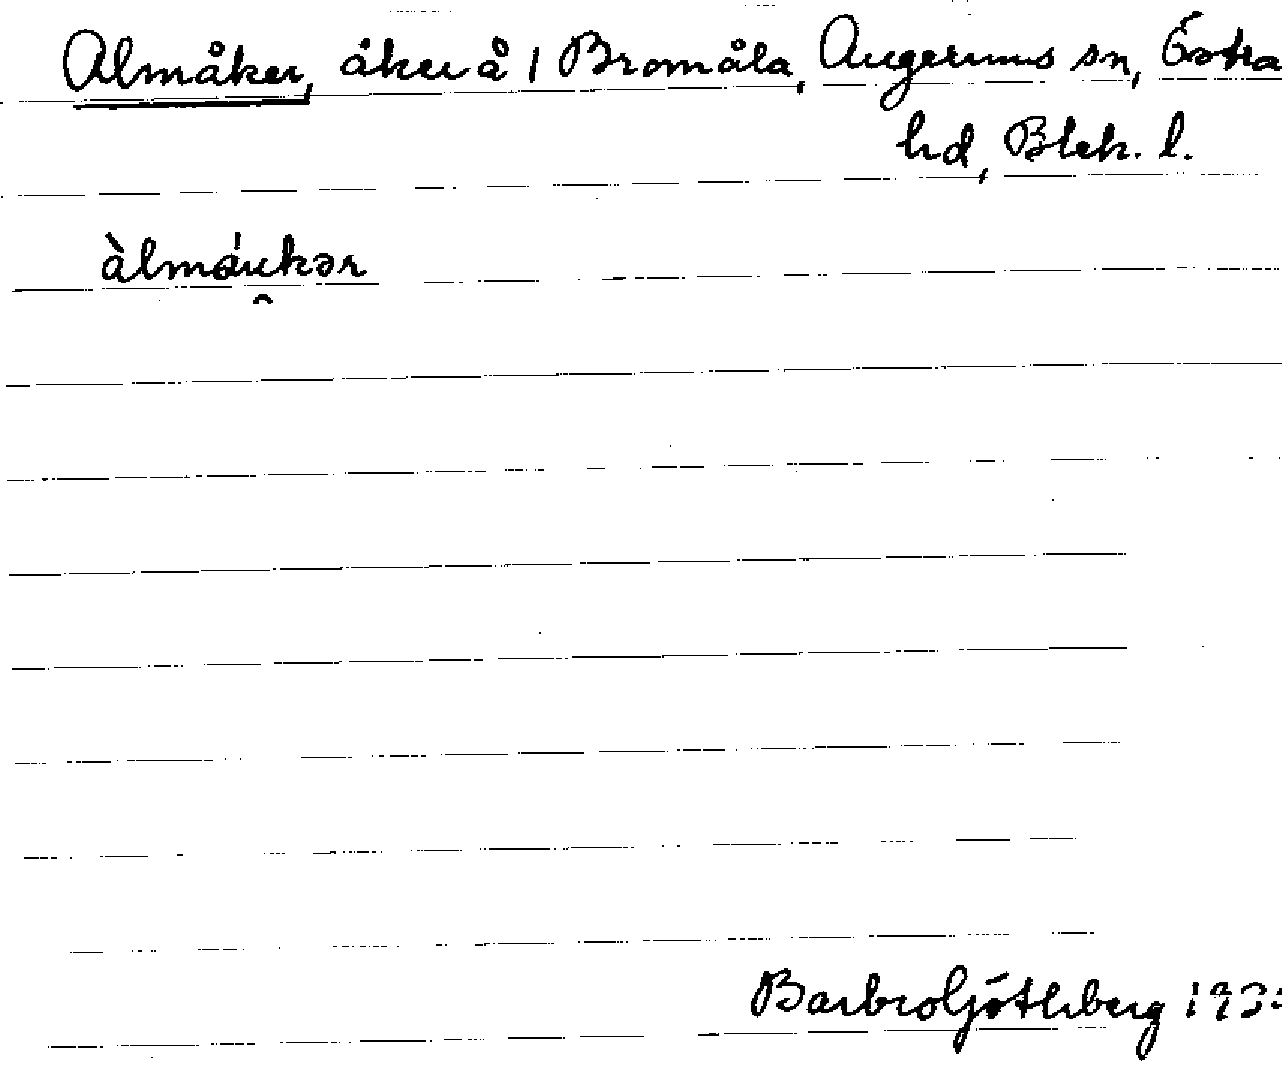 Almåker, åker å 1 Bromåla, Augerums sn, Östra
hd, Blek. l.
àlmáukər
Barbro Götlberg 193